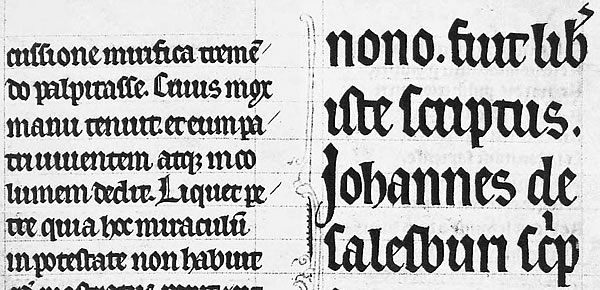 cussione mirifica tremē/
do palpitasse. Cuius mox
manu tenuit. et eum pa/
tri uiuentem atqꝫ inco
lumem dedit. Liquet pe/
tre quia hoc miraculū
in potestate non habuit
nono. fuit lib̾
iste scriptus.
Johannes de
salesburi sc͛p